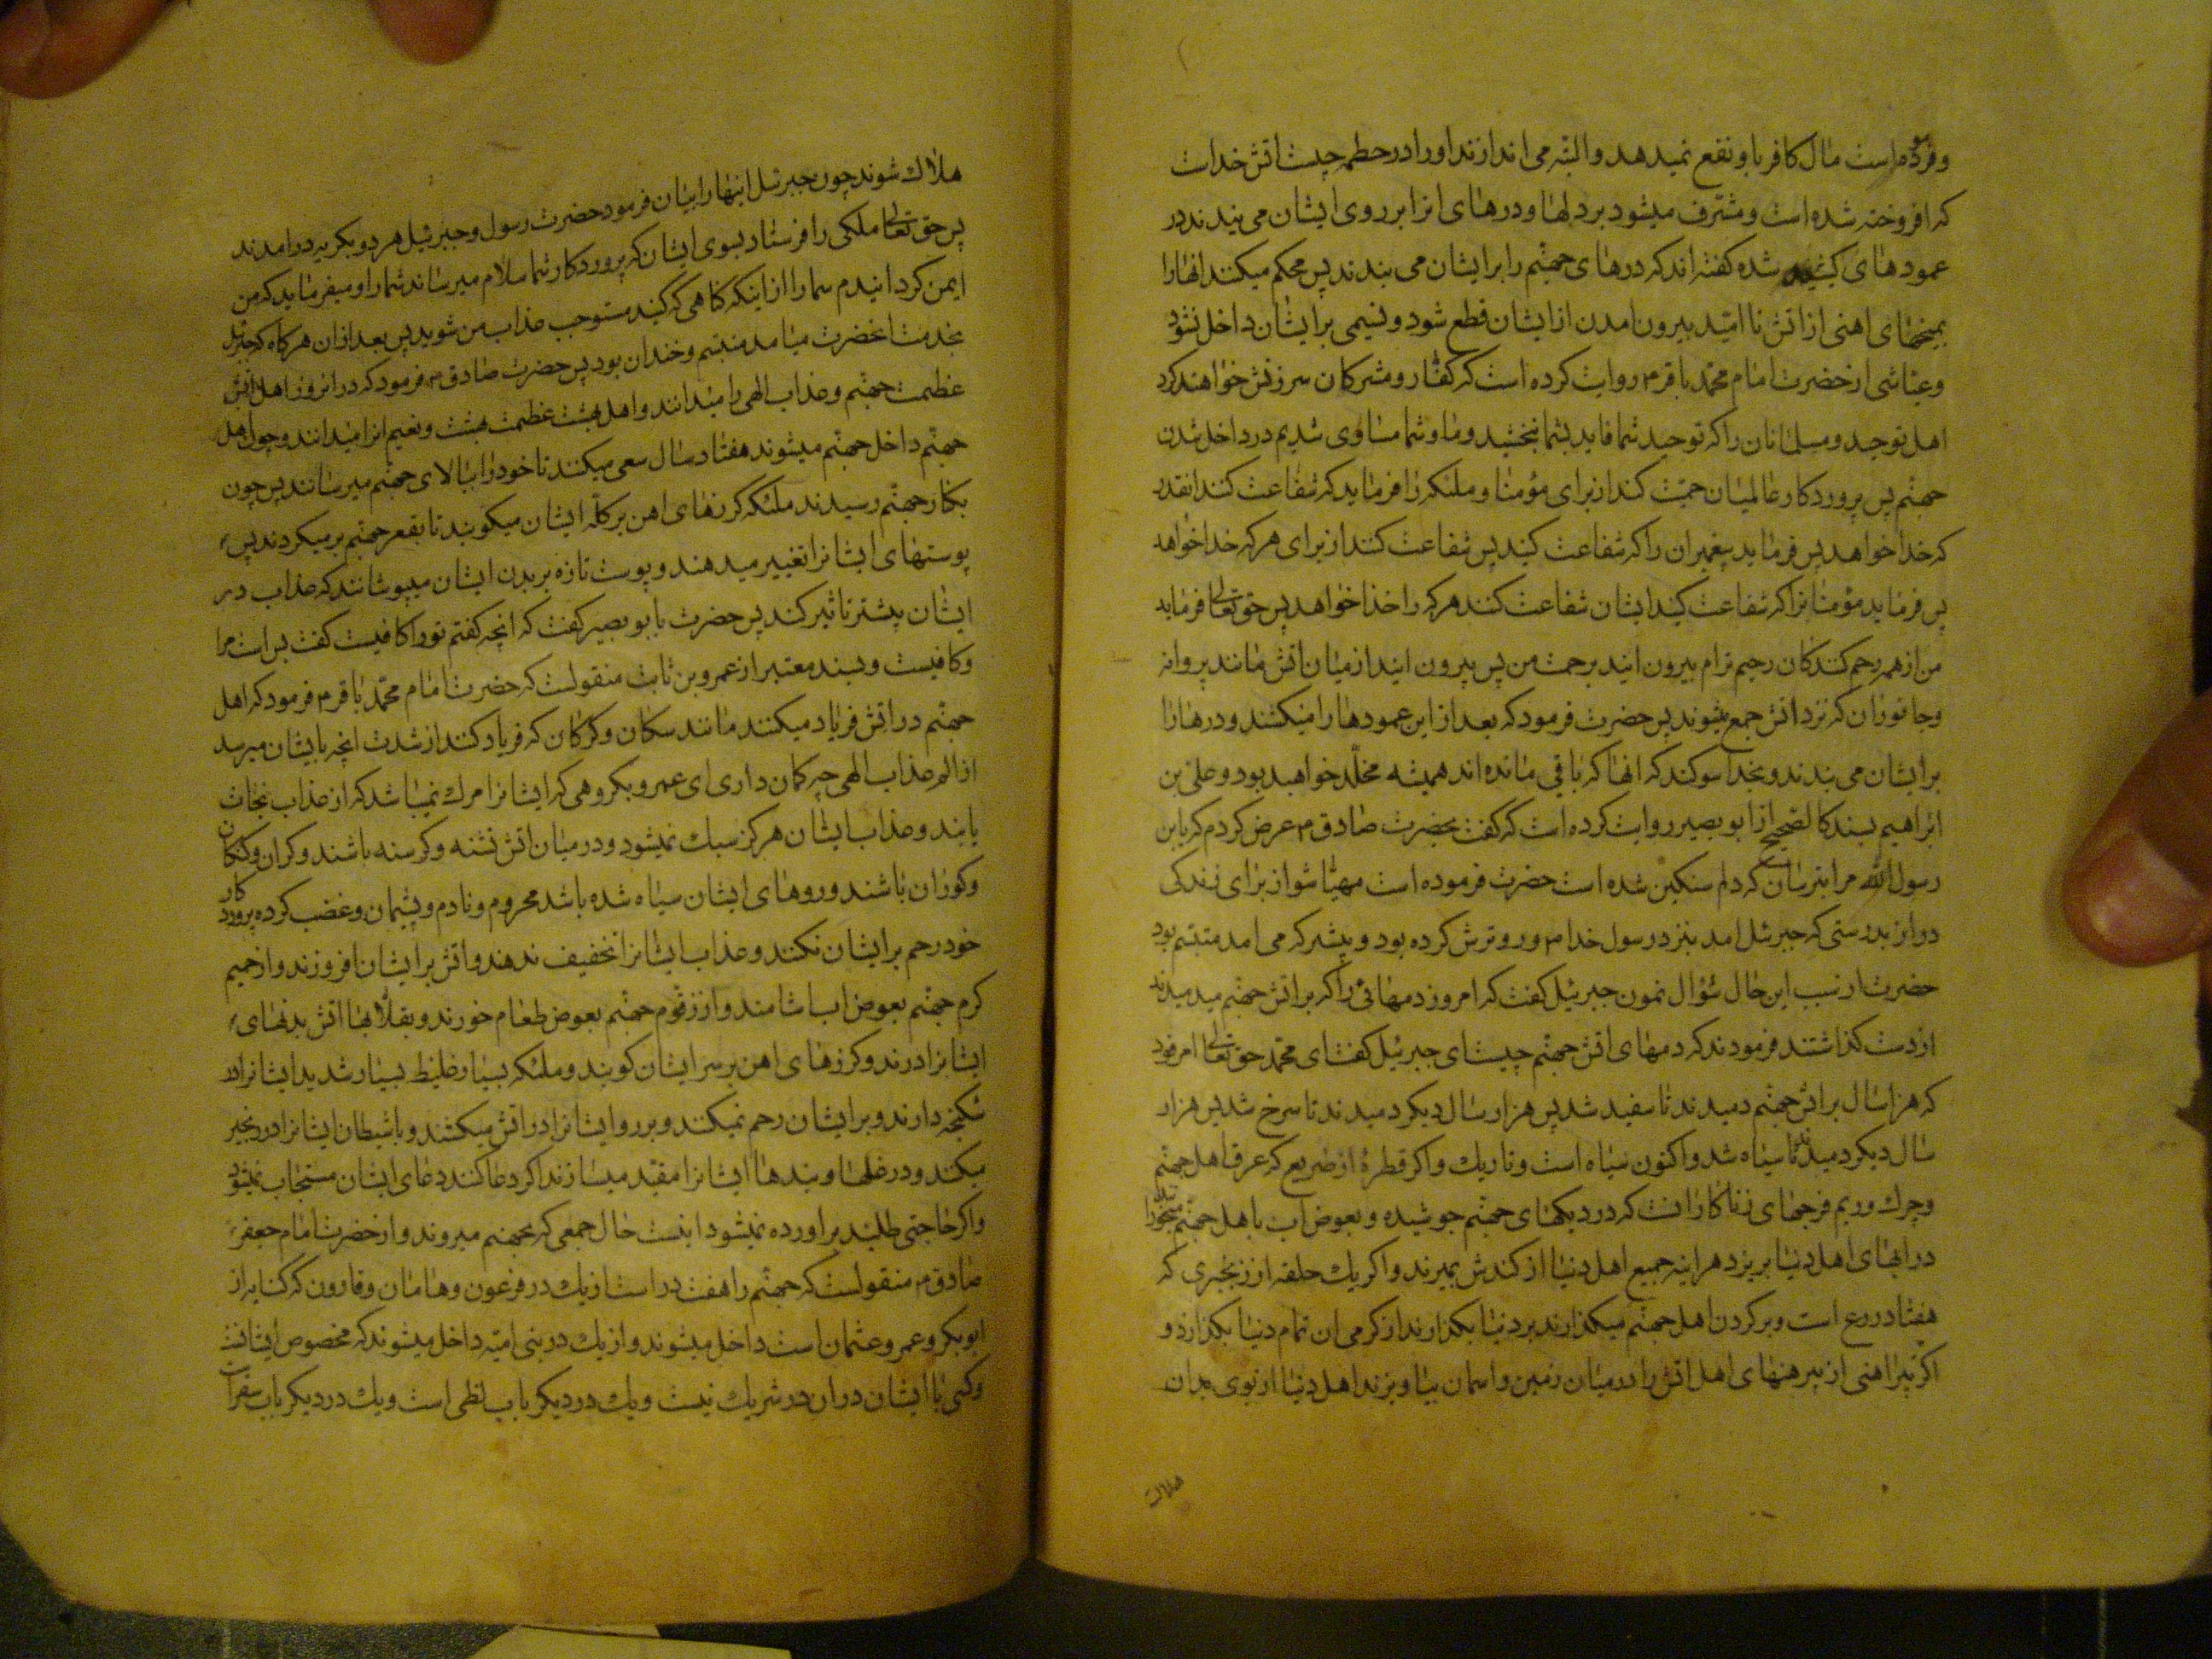 وفرموده است مال کافر باو نفع نمیدهد والبته می اندازند اورا در حطمه چیست اتش خداست
که افروخته شده است ومشرف میشود بر دلها ودرهای انرا بر روی ایشان می بندند در
عمودهای کشیده شده گفته اند که درهای جهنم را بر ایشان می بندند پس محکم میکنند انها را
بمیخهای اهنی از اتش تا امید بیرون امدن از ایشان قطع شود ونسیمی بر ایشان داخل نشود
وعیاشی از حضرت امام محمد باقر م روایت کرده است که کفار ومشرکان سرزنش خواهند کرد
اهل توحید ومسلمانان را که توحید شما فایده بشما نبخشید وما وشما مساوی شدیم در داخل شدن
جهنم پس پروردکار عالمیان حمیت کند از برای مؤمنان وملئکه را فرماید که شفاعت کنند انقدر
که خدا خواهد پس فرماید پیغمبران را که شفاعت کنید پس شفاعت کنند از برای هر که خدا خواهد
پس فرماید مؤمنانرا که شفاعت کنید ایشان شفاعت کنند هر که را خدا خواهد پس حق تعالی فرماید
من از همه رحم کنندکان رحیم ترام بیرون ایید برحمت من پس بیرون ایند از میان اتش مانند پروانه
وجانوران که نزد اتش جمع میشوند پس حضرت فرمود که بعد از این عمودها را میکشند ودرها را
بر ایشان می بندند وبخدا سوکند که انها که باقی مانده اند همیشه مخلد خواهند بود وعلی بن
ابراهیم بسند کالصحیح از ابو بصیر روایت کرده است که گفت بحضرت صادق م عرض کردم که یابن
رسول الله مرا بترسان که دلم سنکین شده است حضرت فرموده است مهیا شو از برای زندکی
دراز بدرستی که جبرئل امد بنزد رسول خدا م ورو ترش کرده بود وپیشتر که می امد متبسم بود
حضرت از سبب این حال سؤال نمود جبرئیل کفت که امروز دمهائی را که بر اتش جهنم میدمیدند
از دست کذاشتند فرمودند که دمهای اتش جهنم چیست ای جبرئیل کفت ای محمد حق تعالی امر فرمود
که هزار سال بر اتش جهنم دمیدند تا سفید شد پس هزار سال دیکر دمیدند تا سرخ شد پس هزار
سال دیکر دمیدند تا سیاه شد واکنون سیاه است وتاریک واکر قطرهٔ از ضریع که عرق اهل جهنم
وچرک وریم فرجهای زناکارانست که در دیکهای جهنم جوشیده وبعوض اب باهل جهنم میخورانند
در ابهای اهل دنیا بریزد هراینه جمیع اهل دنیا از کندش بمیرند واکر یک حلقه از زنجیری که
هفتاد ذرع است وبر کردن اهل جهنم میکذارند بر دنیا بکذارند از کرمی ان تمام دنیا بکدازد و
اکر پیراهنی از پیرهنهای اهل اتش را در میان زمین واسمان بیاویزند اهل دنیا از بوی بد ان
هلاک
هلاک شوند چون جبرئل اینها را بیان فرمود حضرت رسول وجبرئیل هر دو بکریه درامدند
پس حق تعالی ملکی را فرستاد بسوی ایشان که پروردکار شما سلام میرساند شما را ومیفرماید که من
ایمن کردانیدم شما را از اینکه کناهی که کنید مستوجب عذاب من شوید پس بعد از ان هر کاه که جبرئیل
بخدمت انحضرت میامد متبسم وخندان بود پس حضرت صادق م فرمود که در انروز اهل اتش
عظمت جهنم وعذاب الهی را میدانند واهل بهشت عظمت بهشت ونعیم انرا میدانند وچون اهل
جهنم داخل جهنم میشوند هفتاد سال سعی میکنند تا خود را ببالای جهنم میرسانند پس چون
بکنار جهنم رسیدند ملئکه کرزهای اهن بر کله ایشان میکوبند تا بقعر جهنم بر میکردند پس
پوستهای ایشانرا تغییر میدهند وپوست تازه بر بدن ایشان میپوشانند که عذاب در
ایشان بیشتر تاثیر کند پس حضرت بابو بصیر کفت که انچه کفتم تورا کافیست کفت بس است مرا
وکافیست وبسند معتبر از عمرو بن ثابت منقولست که حضرت امام محمد باقر م فرمود که اهل
جهنم در اتش فریاد میکنند مانند سکان وکرکان که فریاد کنند از شدت انچه بایشان میرسد
از الم عذاب الهی چه کمان داری ای عمرو بکروهی که ایشانرا مرک نمیباشد که از عذاب نجات
یابند وعذاب ایشان هرکز سبک نمیشود ودر میان اتش تشنه وکرسنه باشند وکران وکنکان
وکوران باشند وروهای ایشان سیاه شده باشد محروم ونادم وپشیمان وغضب کرده پروردکار
خود رحم بر ایشان نکنند وعذاب ایشانرا تخفیف ندهند واتش بر ایشان افروزند واز حمیم
کرم جهنم بعوض اب اشامند واز زقوم جهنم بعوض طعام خورند وبقلابها اتش بدنهای
ایشانرا درند وکرزهای اهن بر سر ایشان کوبند وملئکه بسیار غلیظ بسیار شدید ایشانرا در
شکنجه دارند وبر ایشان رحم نمیکنند وبر رو ایشانرا در اتش میکشند وبا شیطان ایشانرا در زنجیر
میکنند ودر غلها وبندها ایشانرا مقید میسازند اکر دعا کنند دعای ایشان مستجاب نمیشود
واکر حاجتی طلبند براورده نمیشود اینست حال جمعی که بجهنم میروند واز حضرت امام جعفر
صادق م منقولست که جهنم را هفت در است از یک در فرعون وهامان وقارون که کنایه از
ابوبکر وعمر وعثمان است داخل میشوند واز یک در بنی امیه داخل میشوند که مخصوص ایشانست
وکسی با ایشان در ان در شریک نیست ویک در دیکر باب لظی است ویک در دیکر باب سقر است